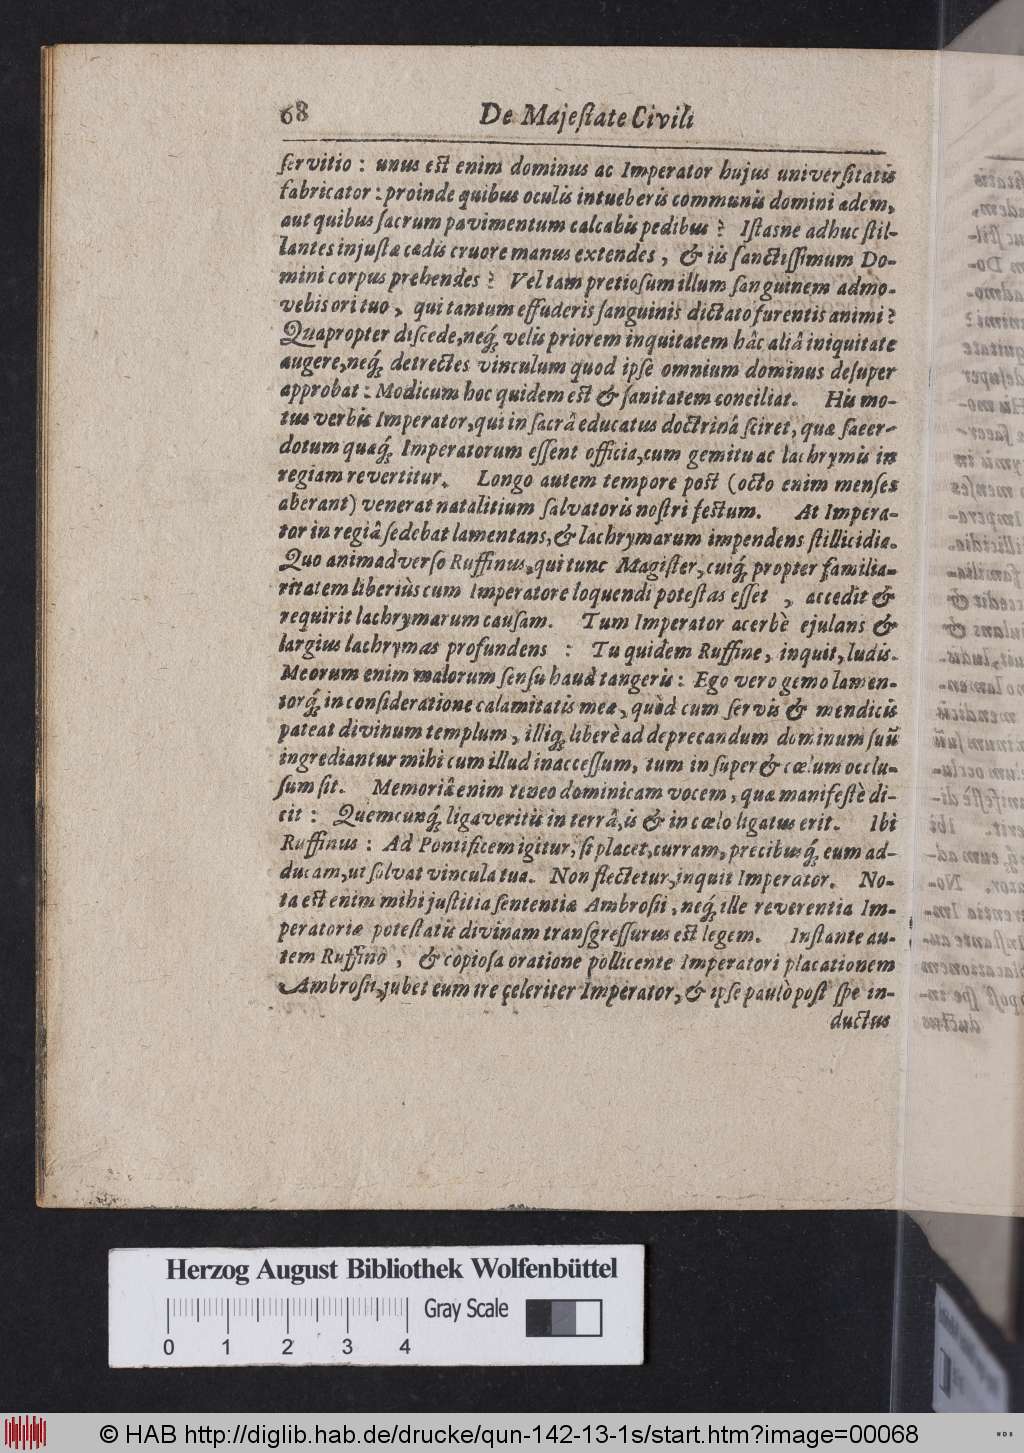 68 De Majeſtate Civili
ſervitio : unus eſt enim dominus ac Imperator hujus univerſitatis
fabricator : proinde quibus oculis intueberis communis domini ædem,
aut quibus ſacrum pavimentum calcabis pedibus ? Iſtasne adhuc ſtil-
lantes injuſtæ cædis cruore manus extendes , & iis ſanctiſſimum Do-
mini corpus prehendes ? Vel tam pretioſum illum ſanguinem admo-
vebis ori tuo , qui tantum effuderis ſanguinis dictato furentis animi ?
Quapropter diſcede, neq́; velis priorem inquitatem hâc aliâ iniquitate
augere, neq́; detrectes vinculum quod ipſe omnium dominus deſuper
approbat : Modicum hoc quidem eſt & ſanitatem conciliat. His mo-
tus verbis Imperator, qui in ſacrâ educatus doctrinâ ſciret, quæ ſacer-
dotum quæq́; Imperatorum eſſent officia, cum gemitu ac lachrymis in
regiam revertitur. Longo autem tempore poſt (octo enim menſes
aberant) venerat natalitium ſalvatoris noſtri feſtum. At Impera-
tor in regiâ ſedebat lamentans, & lachrymarum impendens ſtillicidia.
Quo animadverſo Ruffinus, qui tunc Magiſter, cuiq́; propter familia-
ritatem liberiùs cum Imperatore loquendi poteſtas eſſet , accedit &
requirit lachrymarum cauſam. Tum Imperator acerbè ejulans &
largius lachrymas profundens : Tu quidem Ruffine, inquit, ludis.
Meorum enim malorum ſenſu haud tangeris : Ego vero gemo lamen-
torq́; in conſideratione calamitatis meæ, quòd cum ſervis & mendicis
pateat divinum templum, illiq́; liberè ad deprecandum dominum ſuū
ingrediantur mihi cum illud inacceſſum, tum inſuper & cœlum occlu-
ſum ſit. Memoriâ enim teneo dominicam vocem, quæ manifeſtè di-
cit : Quemcunq́; ligaveritis in terrâ, is & in cœlo ligatus erit. Ibi
Ruffinus : Ad Pontificem igitur, ſi placet, curram, precibusq́; eum ad-
ducam, ut ſolvat vincula tua. Non flectetur, inquit Imperator. No-
ta eſt enim mihi juſtitia ſententiæ Ambroſii, neq́; ille reverentia Im-
peratoriæ poteſtatis divinam transgreſſurus eſt legem. Inſtante au-
tem Ruffino , & copioſa oratione pollicente Imperatori placationem
Ambroſii, jubet eum ire celeriter Imperator, & ipſe paulò poſt ſpe in-
ductus
Herzog August Bibliothek Wolfenbüttel
Gray Scale
0 1 2 3 4
© HAB http://diglib.hab.de/drucke/qun-142-13-1s/start.htm?image=00068